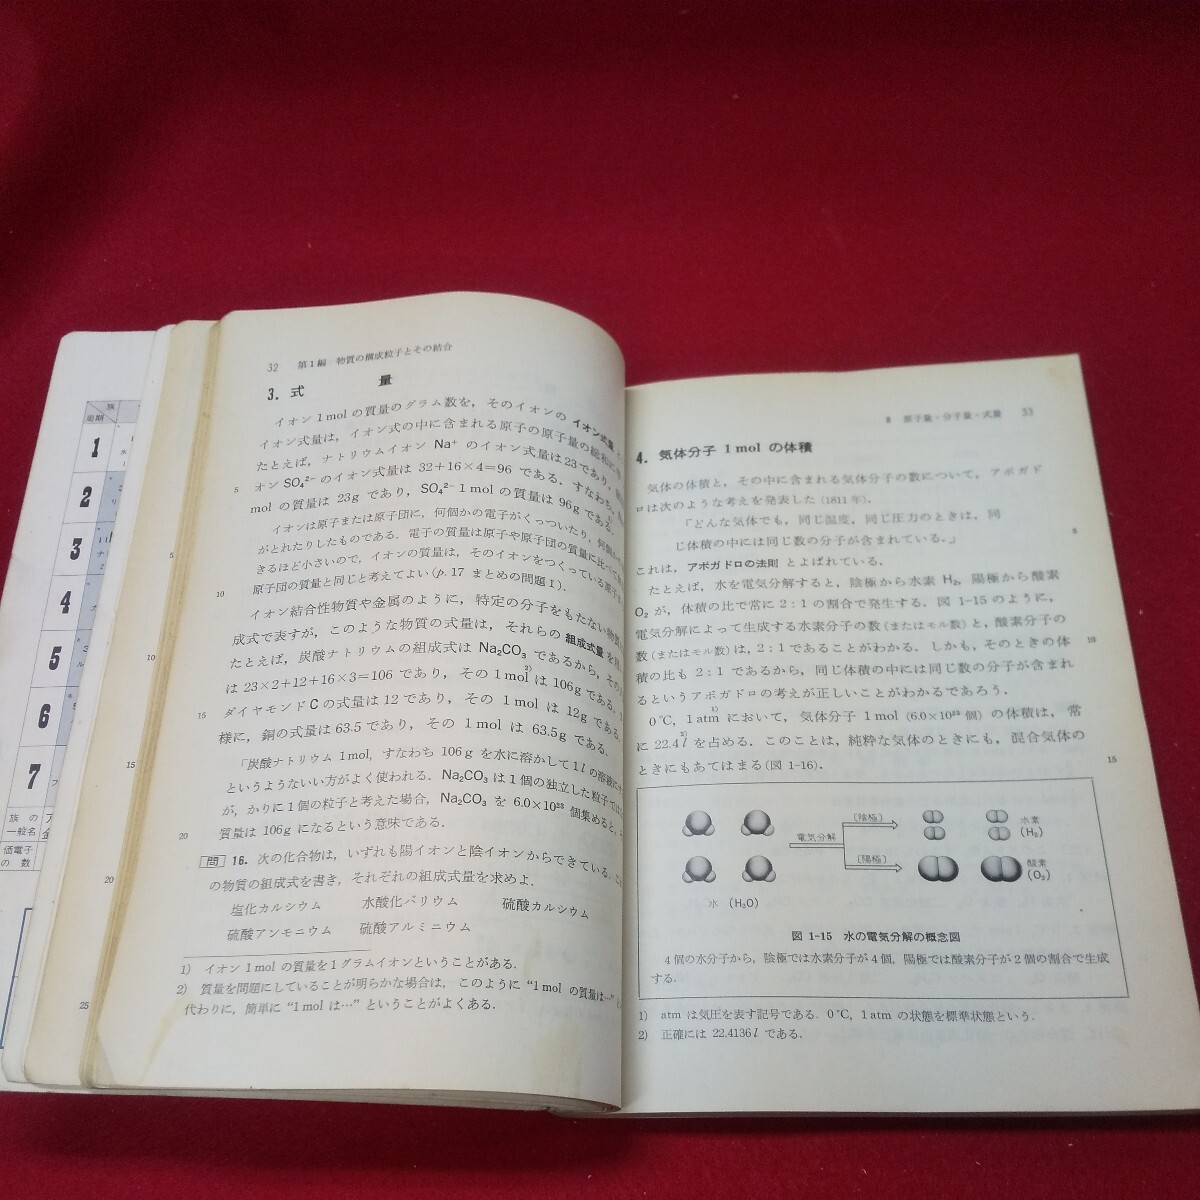 族
周期
1
2
3
4
5
6
7
族の
一般名
価電子
の数
32 第1編 物質の構成粒子とその結合
3. 式 量
イオン1molの質量のグラム数を，そのイオンの イオン式量
イオン式量は，イオン式の中に含まれる原子の原子量の総和に
たとえば，ナトリウムイオン Na⁺ のイオン式量は23であり，
オン SO₄²⁻ のイオン式量は 32+16×4=96 である．すなわち，
molの質量は 23g であり，SO₄²⁻ 1molの質量は 96g である．
イオンは原子または原子団に，何個かの電子がくっついたり，何個か
がとれたりしたものである．電子の質量は原子や原子団の質量に比べて
きるほど小さいので，イオンの質量は，そのイオンをつくっている原子
原子団の質量と同じと考えてよい(p.17 まとめの問題1)．
イオン結合性物質や金属のように，特定の分子をもたない物質
成式で表すが，このような物質の式量は，それらの 組成式量 を
たとえば，炭酸ナトリウムの組成式は Na₂CO₃ であるから，その
は 23×2+12+16×3=106 であり，その 1mol²⁾ は 106g である．
ダイヤモンドCの式量は12であり，その 1mol は 12g である．
様に，銅の式量は63.5であり，その 1mol は 63.5g である．
「炭酸ナトリウム 1mol，すなわち 106g を水に溶かして1lの溶液に
というようないい方がよく使われる．Na₂CO₃ は1個の独立した粒子では
が，かりに1個の粒子と考えた場合，Na₂CO₃ を 6.0×10²³ 個集めると，
質量は 106g になるという意味である．
問 16. 次の化合物は，いずれも陽イオンと陰イオンからできている．
の物質の組成式を書き，それぞれの組成式量を求めよ．
塩化カルシウム 水酸化バリウム 硫酸カルシウム
硫酸アンモニウム 硫酸アルミニウム
1) イオン1molの質量を1グラムイオンということがある．
2) 質量を問題にしていることが明らかな場合は，このように “1molの質量は…”
代わりに，簡単に “1molは…” ということがよくある．
5
10
15
20
5
10
15
20
25
II 原子量・分子量・式量 33
4. 気体分子 1mol の体積
気体の体積と，その中に含まれる気体分子の数について，アボガド
ロは次のような考えを発表した (1811年)．
「どんな気体でも，同じ温度，同じ圧力のときは，同
じ体積の中には同じ数の分子が含まれている．」
これは，アボガドロの法則 とよばれている．
たとえば，水を電気分解すると，陰極から水素 H₂，陽極から酸素
O₂ が，体積の比で常に 2:1 の割合で発生する．図 1-15 のように，
電気分解によって生成する水素分子の数(またはモル数)と，酸素分子の
数(またはモル数)は，2:1であることがわかる．しかも，そのときの体
積の比も 2:1 であるから，同じ体積の中には同じ数の分子が含まれ
るというアボガドロの考えが正しいことがわかるであろう．
0℃，1atm¹⁾ において，気体分子 1mol (6.0×10²³ 個) の体積は，常
に 22.4l²⁾ を占める．このことは，純粋な気体のときにも，混合気体の
ときにもあてはまる(図 1-16)．
5
10
15
電気分解
[陰極]
[陽極]
水素
(H₂)
酸素
(O₂)
水 (H₂O)
図 1-15 水の電気分解の概念図
4個の水分子から，陰極では水素分子が4個，陽極では酸素分子が2個の割合で生成
する．
1) atm は気圧を表す記号である．0℃，1atm の状態を標準状態という．
2) 正確には 22.4136l である．